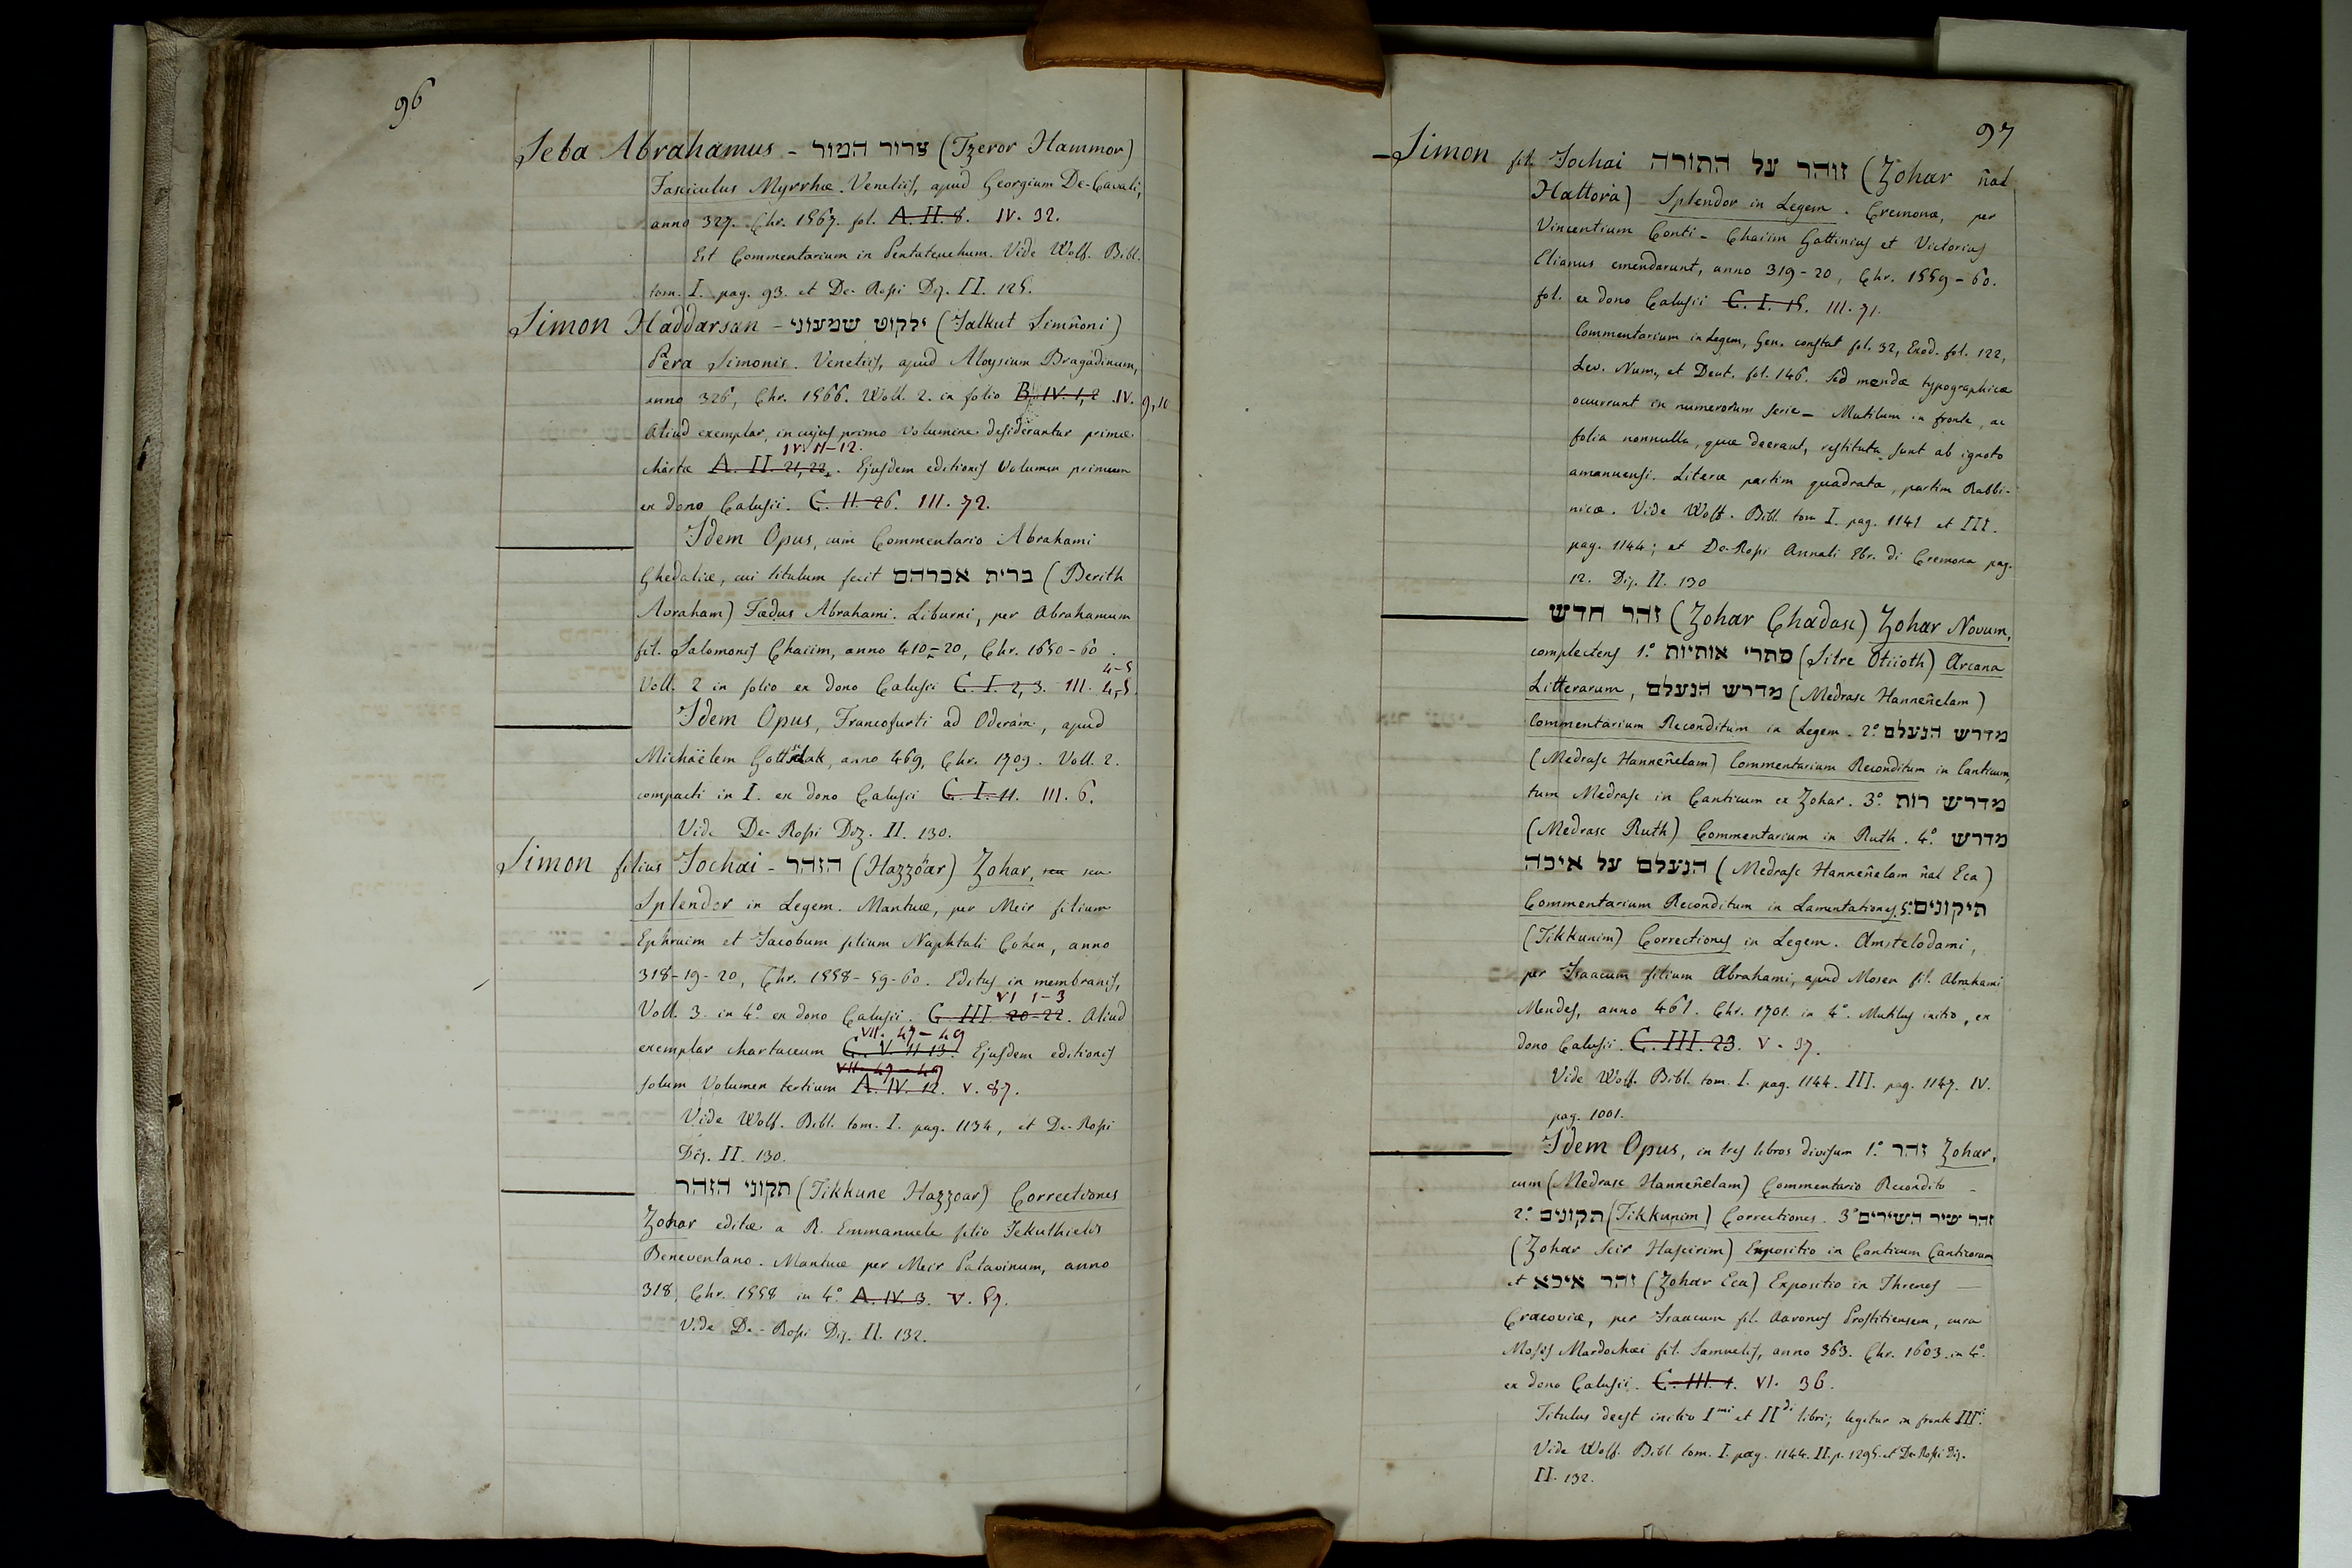 96
Seba Abrahamus - צרור המור (Tzeror Hammor)
Fasciculus Myrrhæ. Venetiis, apud Georgium De-Cavali,
anno 327. Chr. 1567. fol. A. II. 8. IV. 32.
Est Commentarium in Pentateuchum. Vide Wolf. Bibl.
tom. I. pag. 93. et De-Rossi Diz. II. 125.
Simon Haddarsan - ילקוט שמעוני (Jalkut Simñoni)
Pera Simonis. Venetiis, apud Aloysium Bragadinum,
anno 326, Chr. 1566. Voll. 2. in folio B. IV. 1, 2 . IV. 9, 10
Aliud exemplar, in cujus primo volumine desiderantur primæ
IV. 11-12.
chartæ A. II. 21, 22,. Ejusdem editionis Volumen primum
ex dono Calusii. C. II. 26. III. 72.
Idem Opus, cum Commentario Abrahami
Ghedaliæ, cui titulum fecit ברית אברהם (Berith
Avraham) Fœdus Abrahami. Liburni, per Abrahamum
fil. Salomonis Chaiim, anno 410-20, Chr. 1650-60.
4-5
Voll. 2 in folio ex dono Calusii C. I. 2, 3. III. 4,5.
Idem Opus, Francofurti ad Oderam, apud
Michaëlem Gottschalk, anno 469, Chr. 1709. Voll. 2.
compacti in I. ex dono Calusii C. I. 11. III. 6.
Vide De-Rossi Diz. II. 130.
Simon filius Jochai - הזהר (Hazzoar) Zohar, seu seu
Splendor in Legem. Mantuæ, per Meir filium
Ephraim et Jacobum filium Naphtali Cohen, anno
318-19-20, Chr. 1558-59-60. Editus in membranis,
VI 1-3
Voll. 3. in 4.° ex dono Calusii. C. III. 20-22. Aliud
VII. 47-49
exemplar chartaceum C. V. 11-13. Ejusdem editionis
VII. 47-49
solum Volumen tertium A. IV. 12. V. 87.
Vide Wolf. Bibl. tom. I. pag. 1134, et De-Rossi
Diz. II. 130.
תקוני הזהר (Tikkune Hazzoar) Correctiones
Zohar editæ a R. Emmanuele filio Jekuthielis
Beneventano. Mantuæ per Meir Patavinum, anno
318, Chr. 1558 in 4.° A. IV. 3. V. 59.
Vide De-Rossi Diz. II. 132.
97
Simon fil. Jochai זוהר על התורה (Zohar ñal
Hattorà) Splendor in Legem. Cremonæ, per
Vincentium Conti - Chaiim Gattinius et Victorius
Elianus emendarunt, anno 319-20, Chr. 1559-60.
fol. ex dono Calusii C. I. 15. III. 71.
Commentarium in Legem, Gen. constat fol. 32, Exod. fol. 122,
Lev. Num, et Deut. fol. 146. Sed mendæ typographicæ
occurrunt in numerorum serie - Mutilum in fronte, ac
folia nonnulla, quæ deerant, restituta sunt ab ignoto
amanuensi. Literæ partim quadratæ, partim Rabbi-
nicæ. Vide Wolf. Bibl. tom I. pag. 1141 et III.
pag. 1144; et De-Rossi Annali Ebr. di Cremona pag.
12. Diz. II. 130
זהר חדש (Zohar Chadasc) Zohar Novum,
complectens 1.° סתרי אותיות (Sitre Otiioth) Arcana
Litterarum, מדרש הנעלם (Medrasc Hanneñelam)
Commentarium Reconditum in Legem. 2.° מדרש הנעלם
(Medrasc Hanneñelam) Commentarium Reconditum in Canticum,
tum Medrasc in Canticum ex Zohar. 3.° מדרש רות
(Medrasc Ruth) Commentarium in Ruth. 4.° מדרש
הנעלם על איכה (Medrasc Hanneñelam ñal Eca)
Commentarium Reconditum in Lamentationes. 5.° תיקונים
(Tikkunim) Correctiones in Legem. Amstelodami,
per Isaacum filium Abrahami, apud Mosen fil. Abrahami
Mendes, anno 461. Chr. 1701. in 4.° Mutilus initio, ex
dono Calusii. C. III. 23. V. 37.
Vide Wolf. Bibl. tom. I. pag. 1144. III. pag. 1147. IV.
pag. 1001.
Idem Opus, in tres libros divisum 1.° זהר Zohar,
cum (Medrasc Hanneñelam) Commentario Recondito -
2.° תקונים (Tikkunim) Correctiones. 3.° זהר שיר השירים
(Zohar Scir Hascirim) Expositio in Canticum Canticorum
et זהר איכא (Zohar Eca) Expositio in Threnos
Cracoviæ, per Isaacum fil. Aaronis Prostitiensem, cura
Mosis Mardochæi fil. Samuelis, anno 363. Chr. 1603. in 4.°
ex dono Calusii. C. III. 1. VI. 36.
Titulus deest initio Imi et IIdi libri; legitur in fronte IIIi.
Vide Wolf. Bibl. tom. I. pag. 1144. II. p. 1295. et De-Rossi Diz.
II. 132.